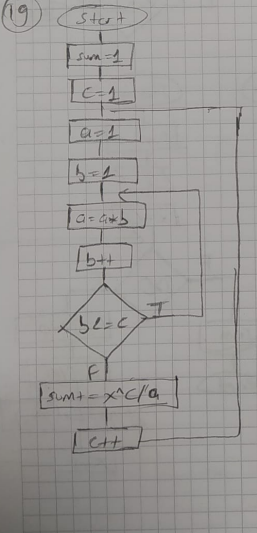 19
Start
sum=1
c=1
a=1
b=1
a=a*b
b++
b<=c
T
F
sum+=x^c/a
c++